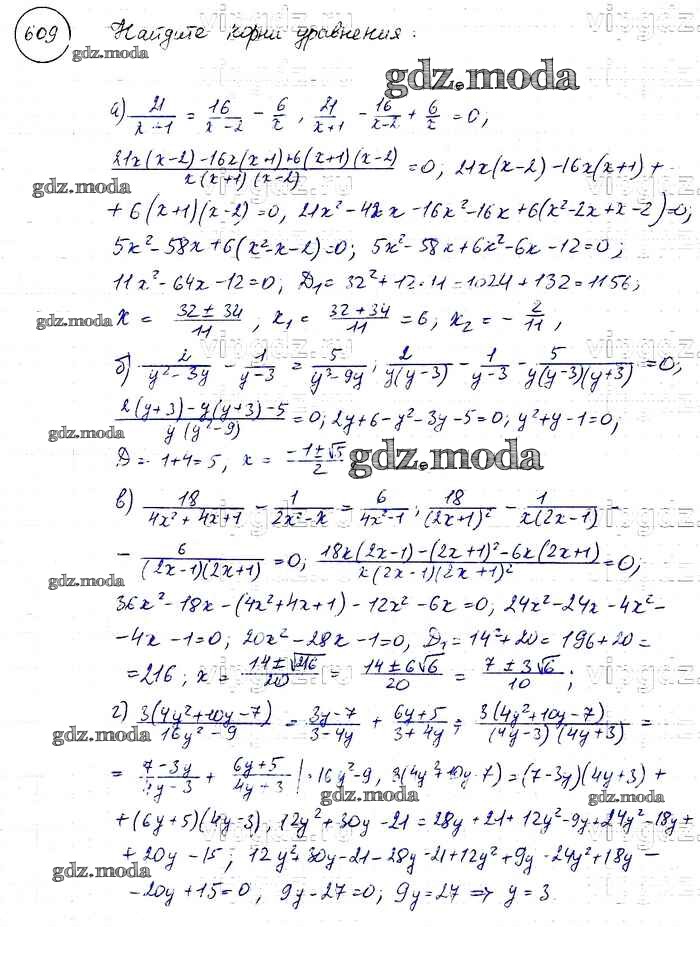 609 Найдите корни уравнения:
gdz.moda
а) 21/(x+1) = 16/(x-2) - 6/x, 21/(x+1) - 16/(x-2) + 6/x = 0,
(21x(x-2) - 16x(x+1) + 6(x+1)(x-2))/(x(x+1)(x-2)) = 0; 21x(x-2) - 16x(x+1) +
gdz.moda
+ 6(x+1)(x-2) = 0, 21x² - 42x - 16x² - 16x + 6(x² - 2x + x - 2) = 0;
5x² - 58x + 6(x² - x - 2) = 0; 5x² - 58x + 6x² - 6x - 12 = 0;
11x² - 64x - 12 = 0; D₁ = 32² + 12·11 = 1024 + 132 = 1156;
gdz.moda x = (32 ± 34)/11, x₁ = (32 + 34)/11 = 6, x₂ = - 2/11,
б) 2/(y² - 3y) - 1/(y-3) = 5/(y³ - 9y); 2/(y(y-3)) - 1/(y-3) - 5/(y(y-3)(y+3)) = 0;
(2(y+3) - y(y+3) - 5)/(y(y² - 9)) = 0; 2y + 6 - y² - 3y - 5 = 0; y² + y - 1 = 0;
gdz.moda
D = 1 + 4 = 5, x = (-1 ± √5)/2 gdz.moda
в) 18/(4x² + 4x + 1) - 1/(2x² - x) = 6/(4x² - 1); 18/(2x+1)² - 1/(x(2x-1)) -
- 6/((2x-1)(2x+1)) = 0; (18x(2x-1) - (2x+1)² - 6x(2x+1))/(x(2x-1)(2x+1)²) = 0;
gdz.moda
36x² - 18x - (4x² + 4x + 1) - 12x² - 6x = 0, 24x² - 24x - 4x² -
- 4x - 1 = 0; 20x² - 28x - 1 = 0, D₁ = 14² + 20 = 196 + 20 =
= 216; x = (14 ± √216)/20 = (14 ± 6√6)/20 = (7 ± 3√6)/10;
г) 3(4y² + 10y - 7)/(16y² - 9) = (3y-7)/(3-4y) + (6y+5)/(3+4y); 3(4y² + 10y - 7)/((4y-3)(4y+3)) =
gdz.moda
= (7-3y)/(4y-3) + (6y+5)/(4y+3) |· 16y² - 9, 3(4y² + 10y - 7) = (7-3y)(4y+3) +
gdz.moda
+ (6y+5)(4y-3), 12y² + 30y - 21 = 28y + 21 + 12y² - 9y + 24y² - 18y +
+ 20y - 15; 12y² + 30y - 21 - 28y - 21 + 12y² + 9y - 24y² + 18y -
gdz.moda
- 20y + 15 = 0, 9y - 27 = 0; 9y = 27 ⇒ y = 3
gdz.moda